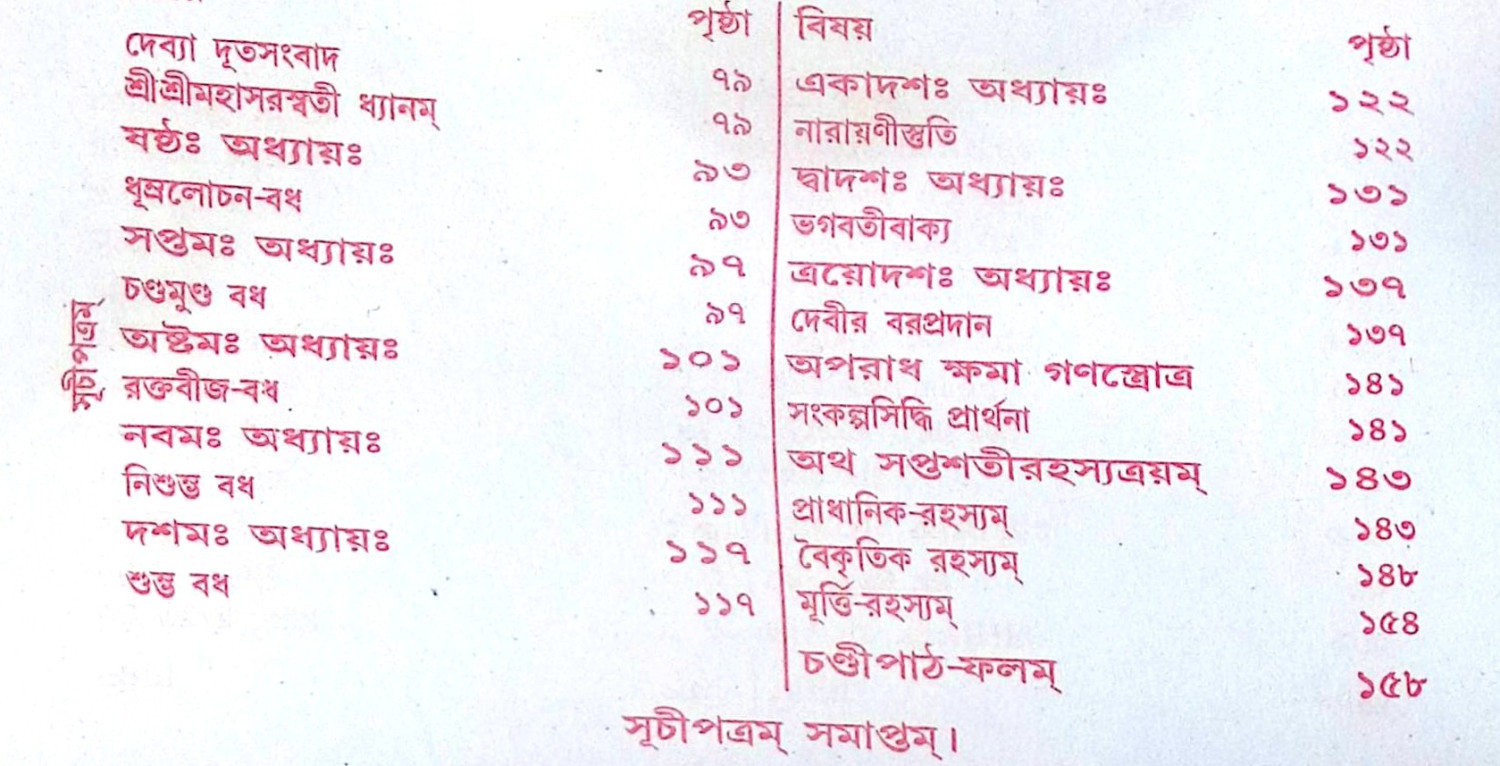 পৃষ্ঠা
দেব্যা দূতসংবাদ ৭৯
শ্রীশ্রীমহাসরস্বতী ধ্যানম্ ৭৯
ষষ্ঠঃ অধ্যায়ঃ ৯৩
ধূম্রলোচন-বধ ৯৩
সপ্তমঃ অধ্যায়ঃ ৯৭
চণ্ডমুণ্ড বধ ৯৭
অষ্টমঃ অধ্যায়ঃ ১০১
রক্তবীজ-বধ ১০১
নবমঃ অধ্যায়ঃ ১১১
নিশুম্ভ বধ ১১১
দশমঃ অধ্যায়ঃ ১১৭
শুম্ভ বধ ১১৭
সূচীপত্রম্
বিষয় পৃষ্ঠা
একাদশঃ অধ্যায়ঃ ১২২
নারায়ণীস্তুতি ১২২
দ্বাদশঃ অধ্যায়ঃ ১৩১
ভগবতীবাক্য ১৩১
ত্রয়োদশঃ অধ্যায়ঃ ১৩৭
দেবীর বরপ্রদান ১৩৭
অপরাধ ক্ষমা গণস্ত্রোত্র ১৪১
সংকল্পসিদ্ধি প্রার্থনা ১৪১
অথ সপ্তশতীরহস্যত্রয়ম্ ১৪৩
প্রাধানিক-রহস্যম্ ১৪৩
বৈকৃতিক রহস্যম্ ১৪৮
মূর্ত্তি-রহস্যম্ ১৫৪
চণ্ডীপাঠ-ফলম্ ১৫৮
সূচীপত্রম্ সমাপ্তম্।